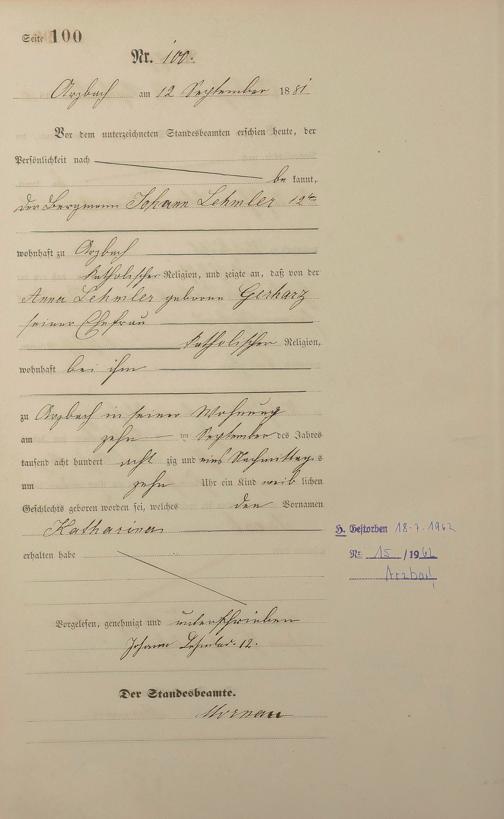 Seite 100
Nr. 100.
Arzbach am 12 September 1881
Vor dem unterzeichneten Standesbeamten erschien heute, der
Persönlichkeit nach
be kannt,
der Bergmann Johann Lehmler 12te
wohnhaft zu Arzbach
katholischer Religion, und zeigte an, daß von der
Anna Lehmler geborene Gerharz
seiner Ehefrau
katholischer Religion,
wohnhaft bei ihm
zu Arzbach in seiner Wohnung
am zehn ten September des Jahres
tausend acht hundert acht zig und eins Nachmittags
um zehn Uhr ein Kind weib lichen
Geschlechts geboren worden sei, welches den Vornamen
Katharina
erhalten habe
H. Gestorben 18.7.1962
Nr. 15 /1962
Arzbach
Vorgelesen, genehmigt und unterschrieben
Johann Lehmler. 12.
Der Standesbeamte.